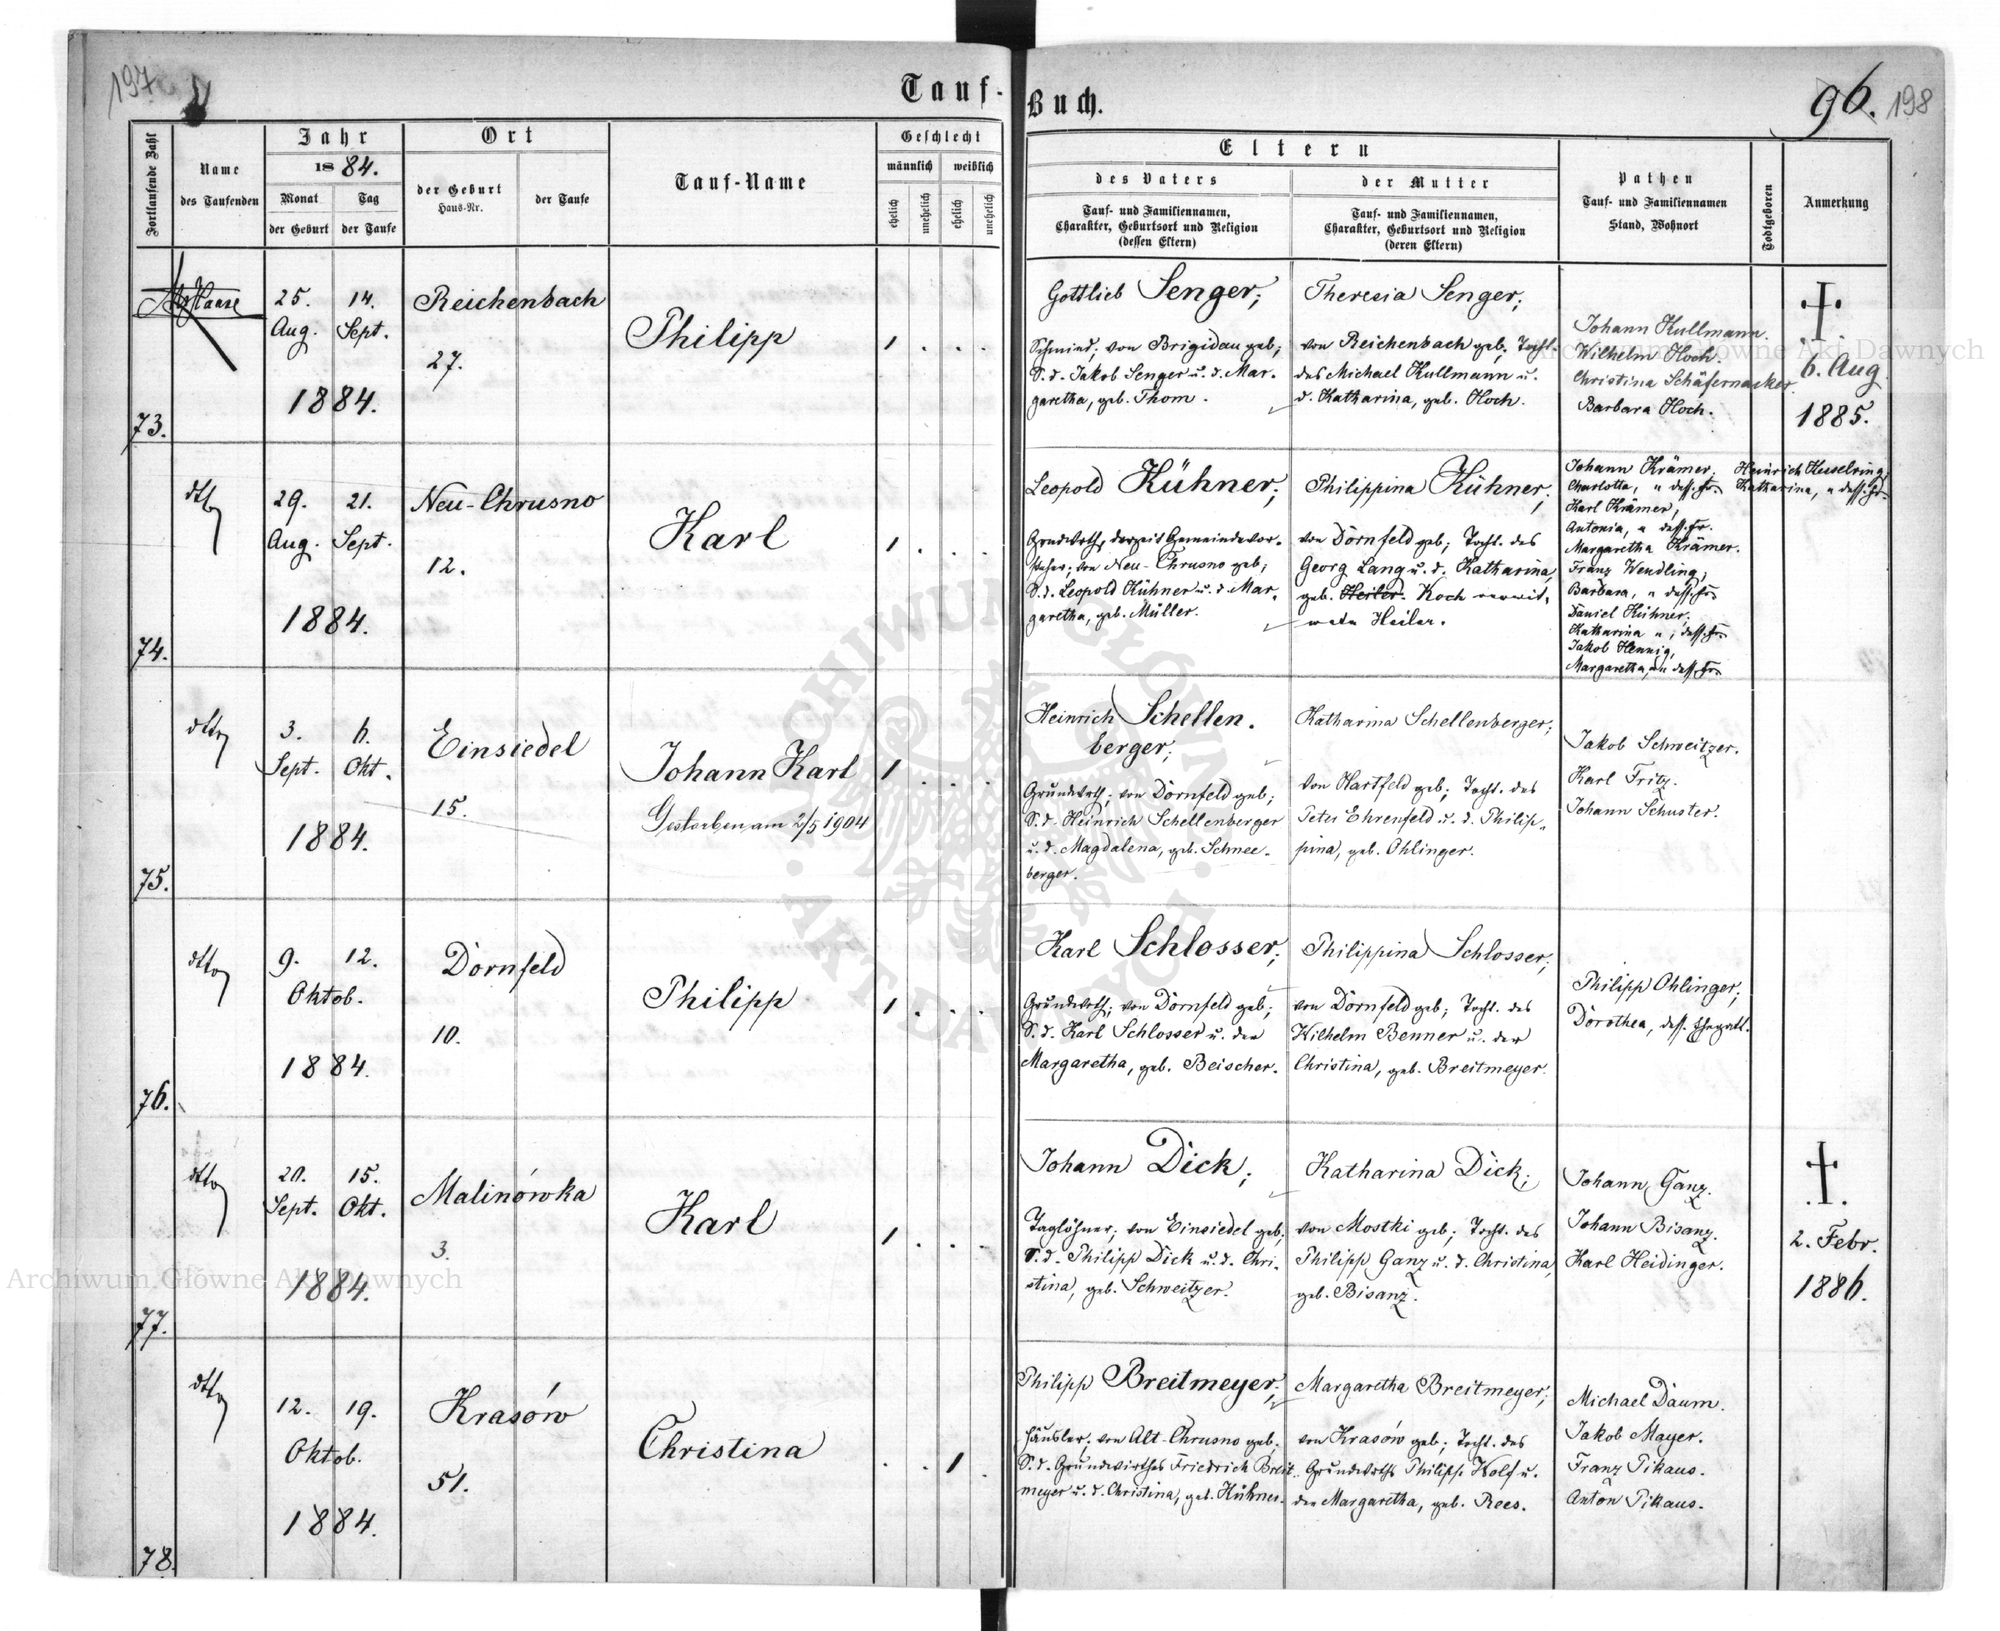 197
Tauf-
Buch.
96. 198
Fortlaufende Zahl
Name
des Taufenden
Jahr
1884.
Monat
Tag
der Geburt
der Taufe
Ort
der Geburt
Haus-Nr.
der Taufe
Tauf-Name
Geschlecht
männlich
weiblich
ehelich
unehelich
ehelich
unehelich
Eltern
des Vaters
Tauf- und Familiennamen,
Charakter, Geburtsort und Religion
(dessen Eltern)
der Mutter
Tauf- und Familiennamen,
Charakter, Geburtsort und Religion
(deren Eltern)
Pathen
Tauf- und Familiennamen
Stand, Wohnort
Todtgeboren
Anmerkung
73.
Haase
25. 14.
Aug. Sept.
1884.
Reichenbach
27.
Philipp
1 . . .
Gottlieb Senger;
Schmied; von Brigidau geb;
S. d. Jakob Senger u. d. Mar-
garetha, geb. Thom.
Theresia Senger;
von Reichenbach geb; Tocht.
des Michael Kullmann u.
d. Katharina, geb. Hoch.
Johann Kullmann.
Wilhelm Hoch.
Christina Schäfernacker
Barbara Hoch.
6. Aug
1885.
74.
dtto
29. 21.
Aug. Sept.
1884.
Neu-Chrusno
12.
Karl
1 . . .
Leopold Kühner;
Grndwrth, derzeit Gemeindevor-
steher; von Neu-Chrusno geb;
S. d. Leopold Kühner u. d. Mar-
garetha, geb. Müller.
Philippina Kühner;
von Dornfeld geb; Tocht. des
Georg Lang u. d. Katharina,
geb. Heiler. Koch verwit-
wete Heiler.
Johann Krämer; Heinrich Kuselring;
Charlotta, u dess. Fr. Katharina, u dess. Fr.
Karl Krämer,
Antonia, u dess. Fr.
Margaretha Krämer.
Franz Wendling;
Barbara, u dess. Fr.
Daniel Kühner;
Katharina u; dess. Fr.
Jakob Hennig,
Margaretha, u dess. Fr.
75.
dtto
3. 6.
Sept. Okt.
1884.
Einsiedel
15.
Johann Karl
Gestorben am 2/5 1904
1 . . .
Heinrich Schellen-
berger;
Grundwrth; von Dornfeld geb;
S. d. Heinrich Schellenberger
u. d. Magdalena, geb. Schnee-
berger.
Katharina Schellenberger;
von Hartfeld geb; Tocht. des
Peter Ehrenfeld u. d. Philip-
pina, geb. Ohlinger.
Jakob Schweitzer.
Karl Fritz.
Johann Schuster.
76.
dtto
9. 12.
Oktob.
1884.
Dornfeld
10.
Philipp
1 . . .
Karl Schlosser;
Grundwrth; von Dornfeld geb;
S. d. Karl Schlosser u. der
Margaretha, geb. Beischer.
Philippina Schlosser;
von Dornfeld geb; Tocht. des
Wilhelm Benner u. der
Christina, geb. Breitmeyer.
Philipp Ohlinger;
Dorothea, dess. Ehegatt.
77.
dtto
20. 15.
Sept. Okt.
1884.
Malinówka
3.
Karl
1 . . .
Johann Dick;
Taglöhner; von Einsiedel geb;
S. d. Philipp Dick u. d. Chri-
stina, geb. Schweitzer.
Katharina Dick;
von Mostki geb; Tocht. des
Philipp Ganz u. d. Christina,
geb. Bisanz.
Johann Ganz.
Johann Bisanz.
Karl Heidinger.
2. Febr.
1886.
78.
dtto
12. 19.
Oktob.
1884.
Krasów
51.
Christina
. . 1 .
Philipp Breitmeyer;
Häusler; von Alt-Chrusno geb;
S. d. Grundwirthes Friedrich Breit-
meyer u. d. Christina, geb. Kühner.
Margaretha Breitmeyer;
von Krasów geb; Tocht. des
Grundwrths Philipp Wolf u.
der Margaretha, geb. Rees.
Michael Daum.
Jakob Mayer.
Franz Pikaus.
Anton Pikaus.
Archiwum Główne Akt Dawnych
Archiwum Główne Akt Dawnych
ARCHIWUM GŁÓWNE AKT DAWNYCH